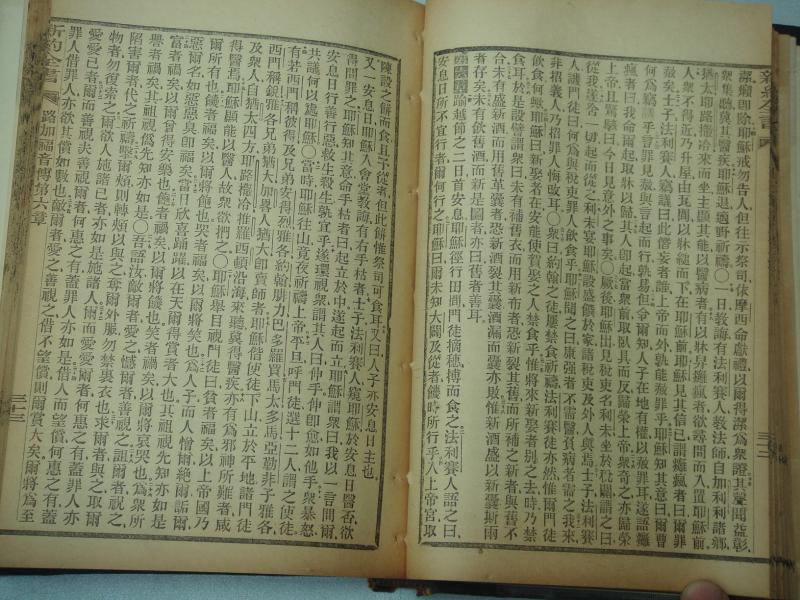 新約全書
癩卽除耶穌戒勿告人但往示祭司依摩西命獻禮以爾得潔爲衆證其聲聞益彰
衆集聽冀其醫疾耶穌退適野祈禱〇一日教誨有法利賽人教法師自加利利諸鄉
猶太耶路撒冷來而坐主顯其能以醫病者有以牀舁癱瘋者欲尋間而入置耶穌前
衆人不得近乃升屋由瓦間以牀縋而下在耶穌前耶穌見其信已謂癱瘋者曰爾罪
赦矣士子法利賽人竊議曰此僭妄者誰上帝而外孰能赦罪乎耶穌知其意曰爾曹
何心竊議乎言罪見赦與言起而行孰易但令爾知人子在地有權以赦罪耳遂語癱
瘋者曰我命爾起取牀以歸其人卽起當衆前取臥具而反歸榮上帝衆奇之亦歸榮
上帝且驚駭曰今日見意外之事矣〇厥後耶穌出見稅吏名利未坐於稅關謂之曰
從我遂舍一切起而從之利未宴耶穌設盛饌於家諸稅吏及外人與焉士子法利賽
人譏門徒曰何爲與稅吏罪人飲食乎耶穌聞之曰康强者不需醫負病者需之我來
非招義人乃招罪人悔改耳〇衆曰約翰之徒屢禁食祈禱法利賽徒亦然惟爾門徒
飲食何歟耶穌曰新娶者在安能使賀娶之人禁食乎惟將來新娶者別之去時乃禁
食耳於是設譬謂衆曰未有補舊衣而用新布者恐新裂其舊而所補之新者與舊不
合未有盛新酒而用舊革囊者恐新酒裂其囊酒漏而囊亦敗惟新酒盛以新囊斯兩
者存矣未有飲舊酒而新是圖者亦曰舊者善耳
逾越節之二日首安息日耶穌徑行田間門徒摘穗搏而食之法利賽人語之曰
安息日所不宜行者爾何行之耶穌曰爾未知大闢及從者饑時所行乎入上帝宮取
三十二
陳設之餅卽食且予從者但此餅惟祭司可食耳又曰人子亦安息日主也
又一安息日耶穌入會堂教誨有右手枯者士子法利賽人窺耶穌於安息日醫否欲
得間罪之耶穌知其意命手枯者曰起立於中遂起而立耶穌謂衆曰我以一言問爾
安息日行善行惡救生殺生孰宜乎遂環視衆謂其人曰伸手伸卽愈如他手衆暴怒
共議何以處耶穌〇當時耶穌往山竟夜祈禱上帝平旦呼門徒選十二人謂之使徒
有若西門稱彼得及兄弟安得烈雅各約翰腓力巴多羅買馬太多馬亞勒非子雅各
西門稱銳雅各兄弟猶大加畧人猶大卽賣師者耶穌偕使徒下山立於平地諸門徒
及衆人自猶太四方耶路撒冷推羅西頓沿海來聽冀得醫疾亦有爲邪神所難者咸
得醫焉耶穌顯能以醫人故衆欲捫之〇耶穌舉目視門徒曰貧者福矣以上帝國乃
爾所有也饑者福矣以爾將飽也哭者福矣以爾將笑也爲人子而人憎爾絶爾詬爾
惡爾名如惡惡臭卽福矣當日欣喜踊躍以在天爾得賞者大也其祖視先知亦如是
富者禍矣以爾曾得安樂也飽者禍矣以爾將饑也笑者禍矣以爾將哀哭也爲衆所
譽者禍矣其祖視僞先知亦如是〇吾語汝敵爾者愛之憾爾者善視之詛爾者祝之
陷害爾者代之祈禱擊爾頰則轉頰以與之奪爾外服勿禁裏衣也求爾者與之取爾
物者勿復索之爾欲人施諸己者亦如是施諸人爾而愛愛爾者何惠之有蓋罪人亦
愛愛己者爾而善視夫善視爾者何惠之有蓋罪人亦如是借人而望償何惠之有蓋
罪人借罪人亦欲其償如數也敵爾者愛之善視之借不望償則爾賞大矣爾將爲至
新約全書
路加福音傳第六章
三十三